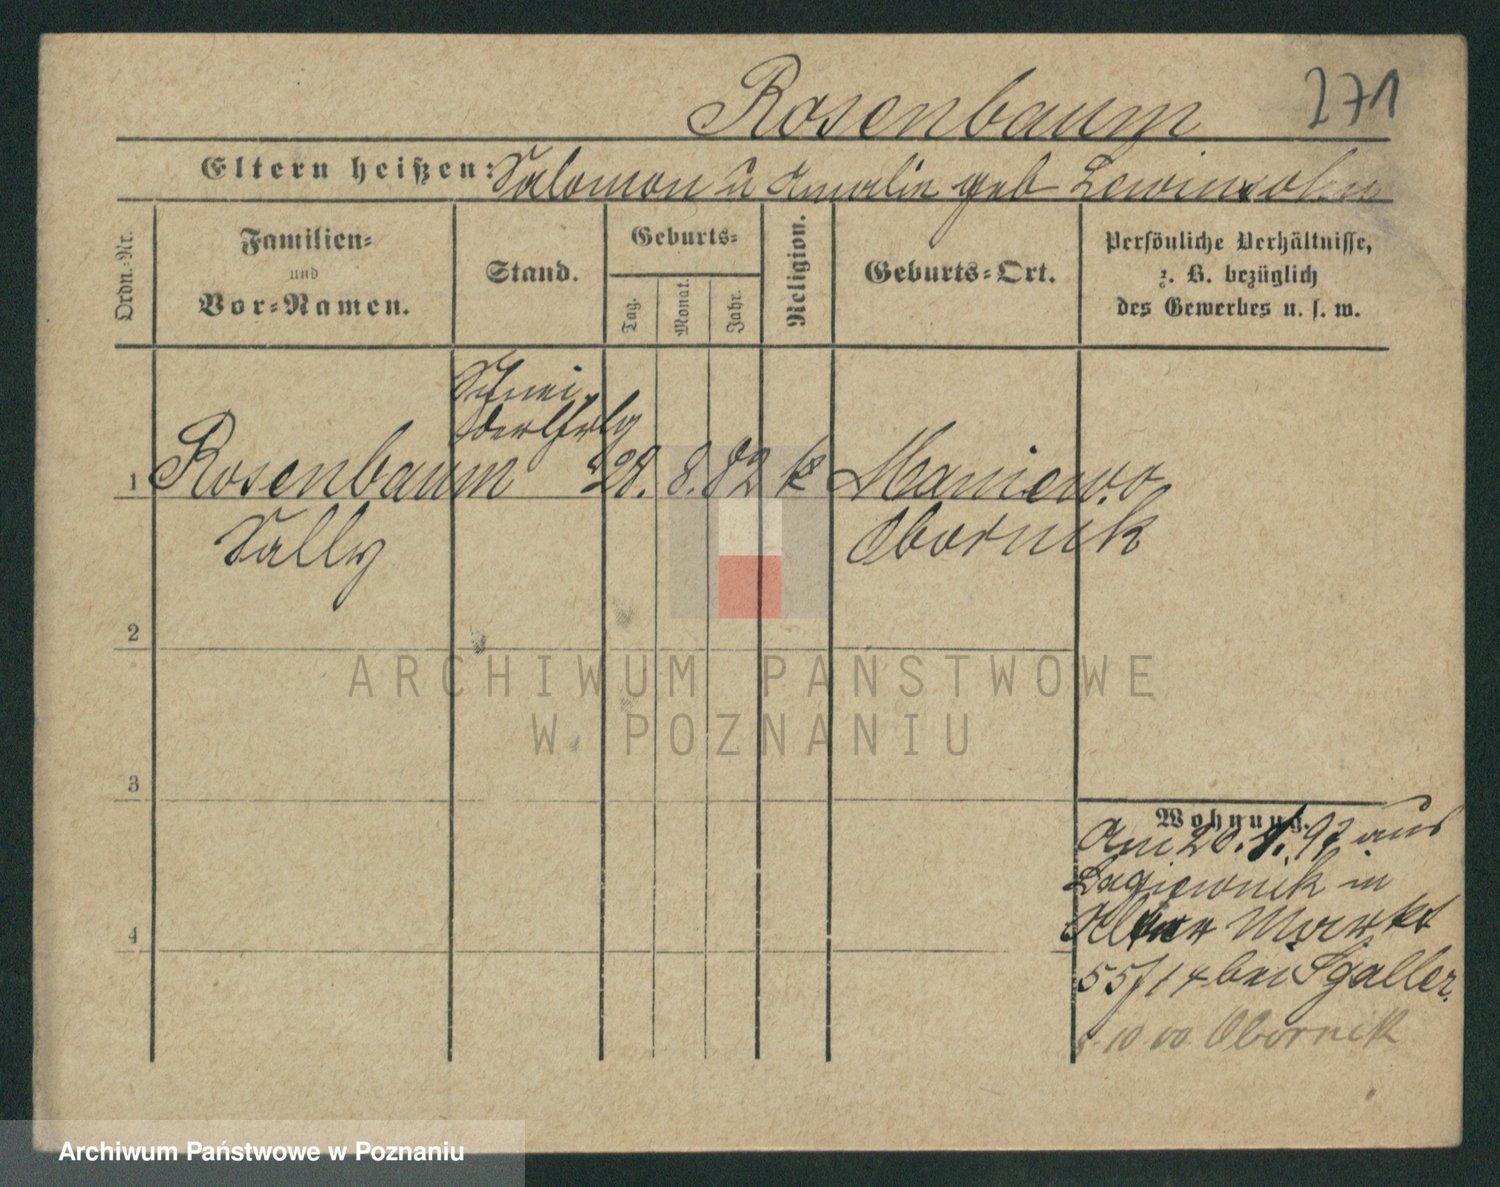 Rosenbaum
271
Eltern heißen: Salomon u Amalie geb Lewinsohn
Ordn.-Nr.
Familien-
und
Vor-Namen.
Stand.
Geburts-
Tag.
Monat.
Jahr.
Religion.
Geburts-Ort.
Persönliche Verhältnisse,
z. B. bezüglich
des Gewerbes u. s. w.
Schnei-
der
1 Rosenbaum 28. 8. 82 Maniewo
Sally Obornik
2
3
4
Wohnung.
Am 20. 97 aus
Lagiewnik in
Markt
55/14 bei
10 00 Obornik
ARCHIWUM PAŃSTWOWE
W POZNANIU
Archiwum Państwowe w Poznaniu